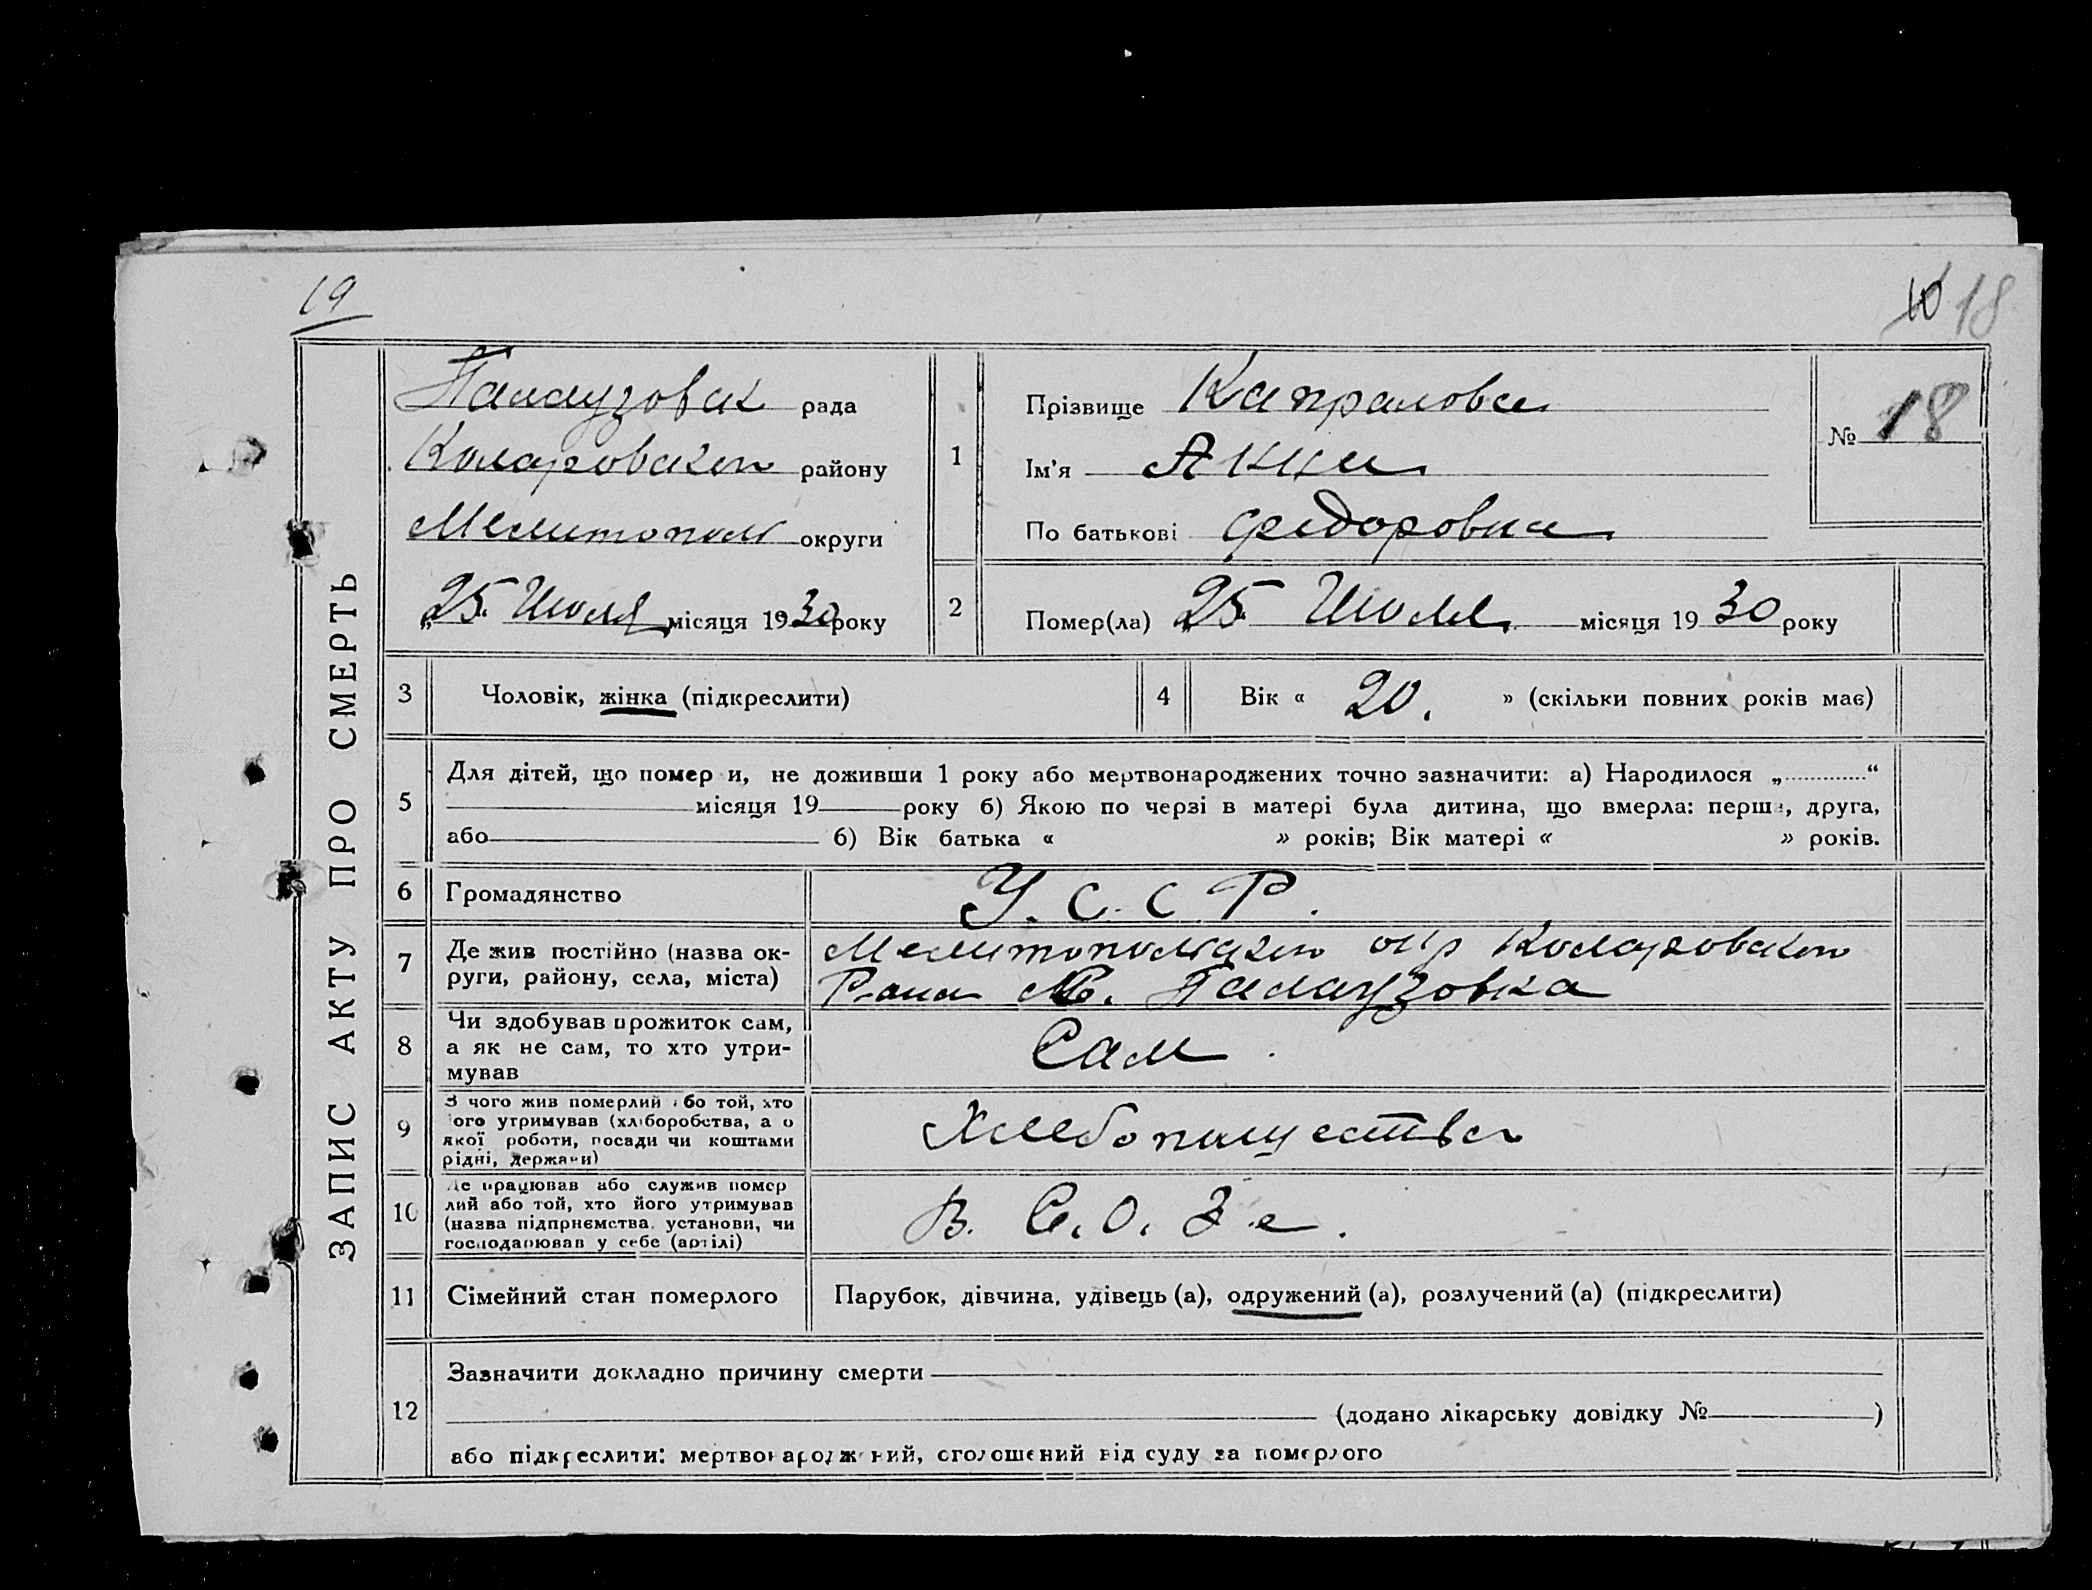 19
10 18
ЗАПИС АКТУ ПРО СМЕРТЬ
Палаузовск рада
Коларовского району
Мелитопол округи
„25 Июля місяця 1930 року
1
Прізвище Капралова
Ім'я Анна
По батькові Федоровна
№ 18
2
Помер(ла) „25 Июля місяця 1930 року
3 Чоловік, жінка (підкреслити)
4 Вік « 20. » (скільки повних років має)
5 Для дітей, що померли, не доживши 1 року або мертвонароджених точно зазначити: а) Народилося „ “
місяця 19 року б) Якою по черзі в матері була дитина, що вмерла: перша, друга,
або б) Вік батька « » років; Вік матері « » років.
6 Громадянство У.С.С.Р.
7 Де жив постійно (назва ок-
руги, району, села, міста)
Мелитопольского окр Коларовского
С. Палаузовка
8 Чи здобував прожиток сам,
а як не сам, то хто утри-
мував
Сам.
9 З чого жив померлий або той, хто
його утримував (хліборобства, а о
якої роботи, посади чи коштами
рідні, держави)
Хлебопашества
10 Де працював або служив помер
лий або той, хто його утримував
(назва підприємства, установи, чи
господарював у себе (артілі)
В. С.О.З-е.
11 Сімейний стан померлого Парубок, дівчина, удівець (а), одружений (а), розлучений (а) (підкреслити)
12 Зазначити докладно причину смерти
(додано лікарську довідку № )
або підкреслити: мертвонароджений, оголошений від суду за померлого